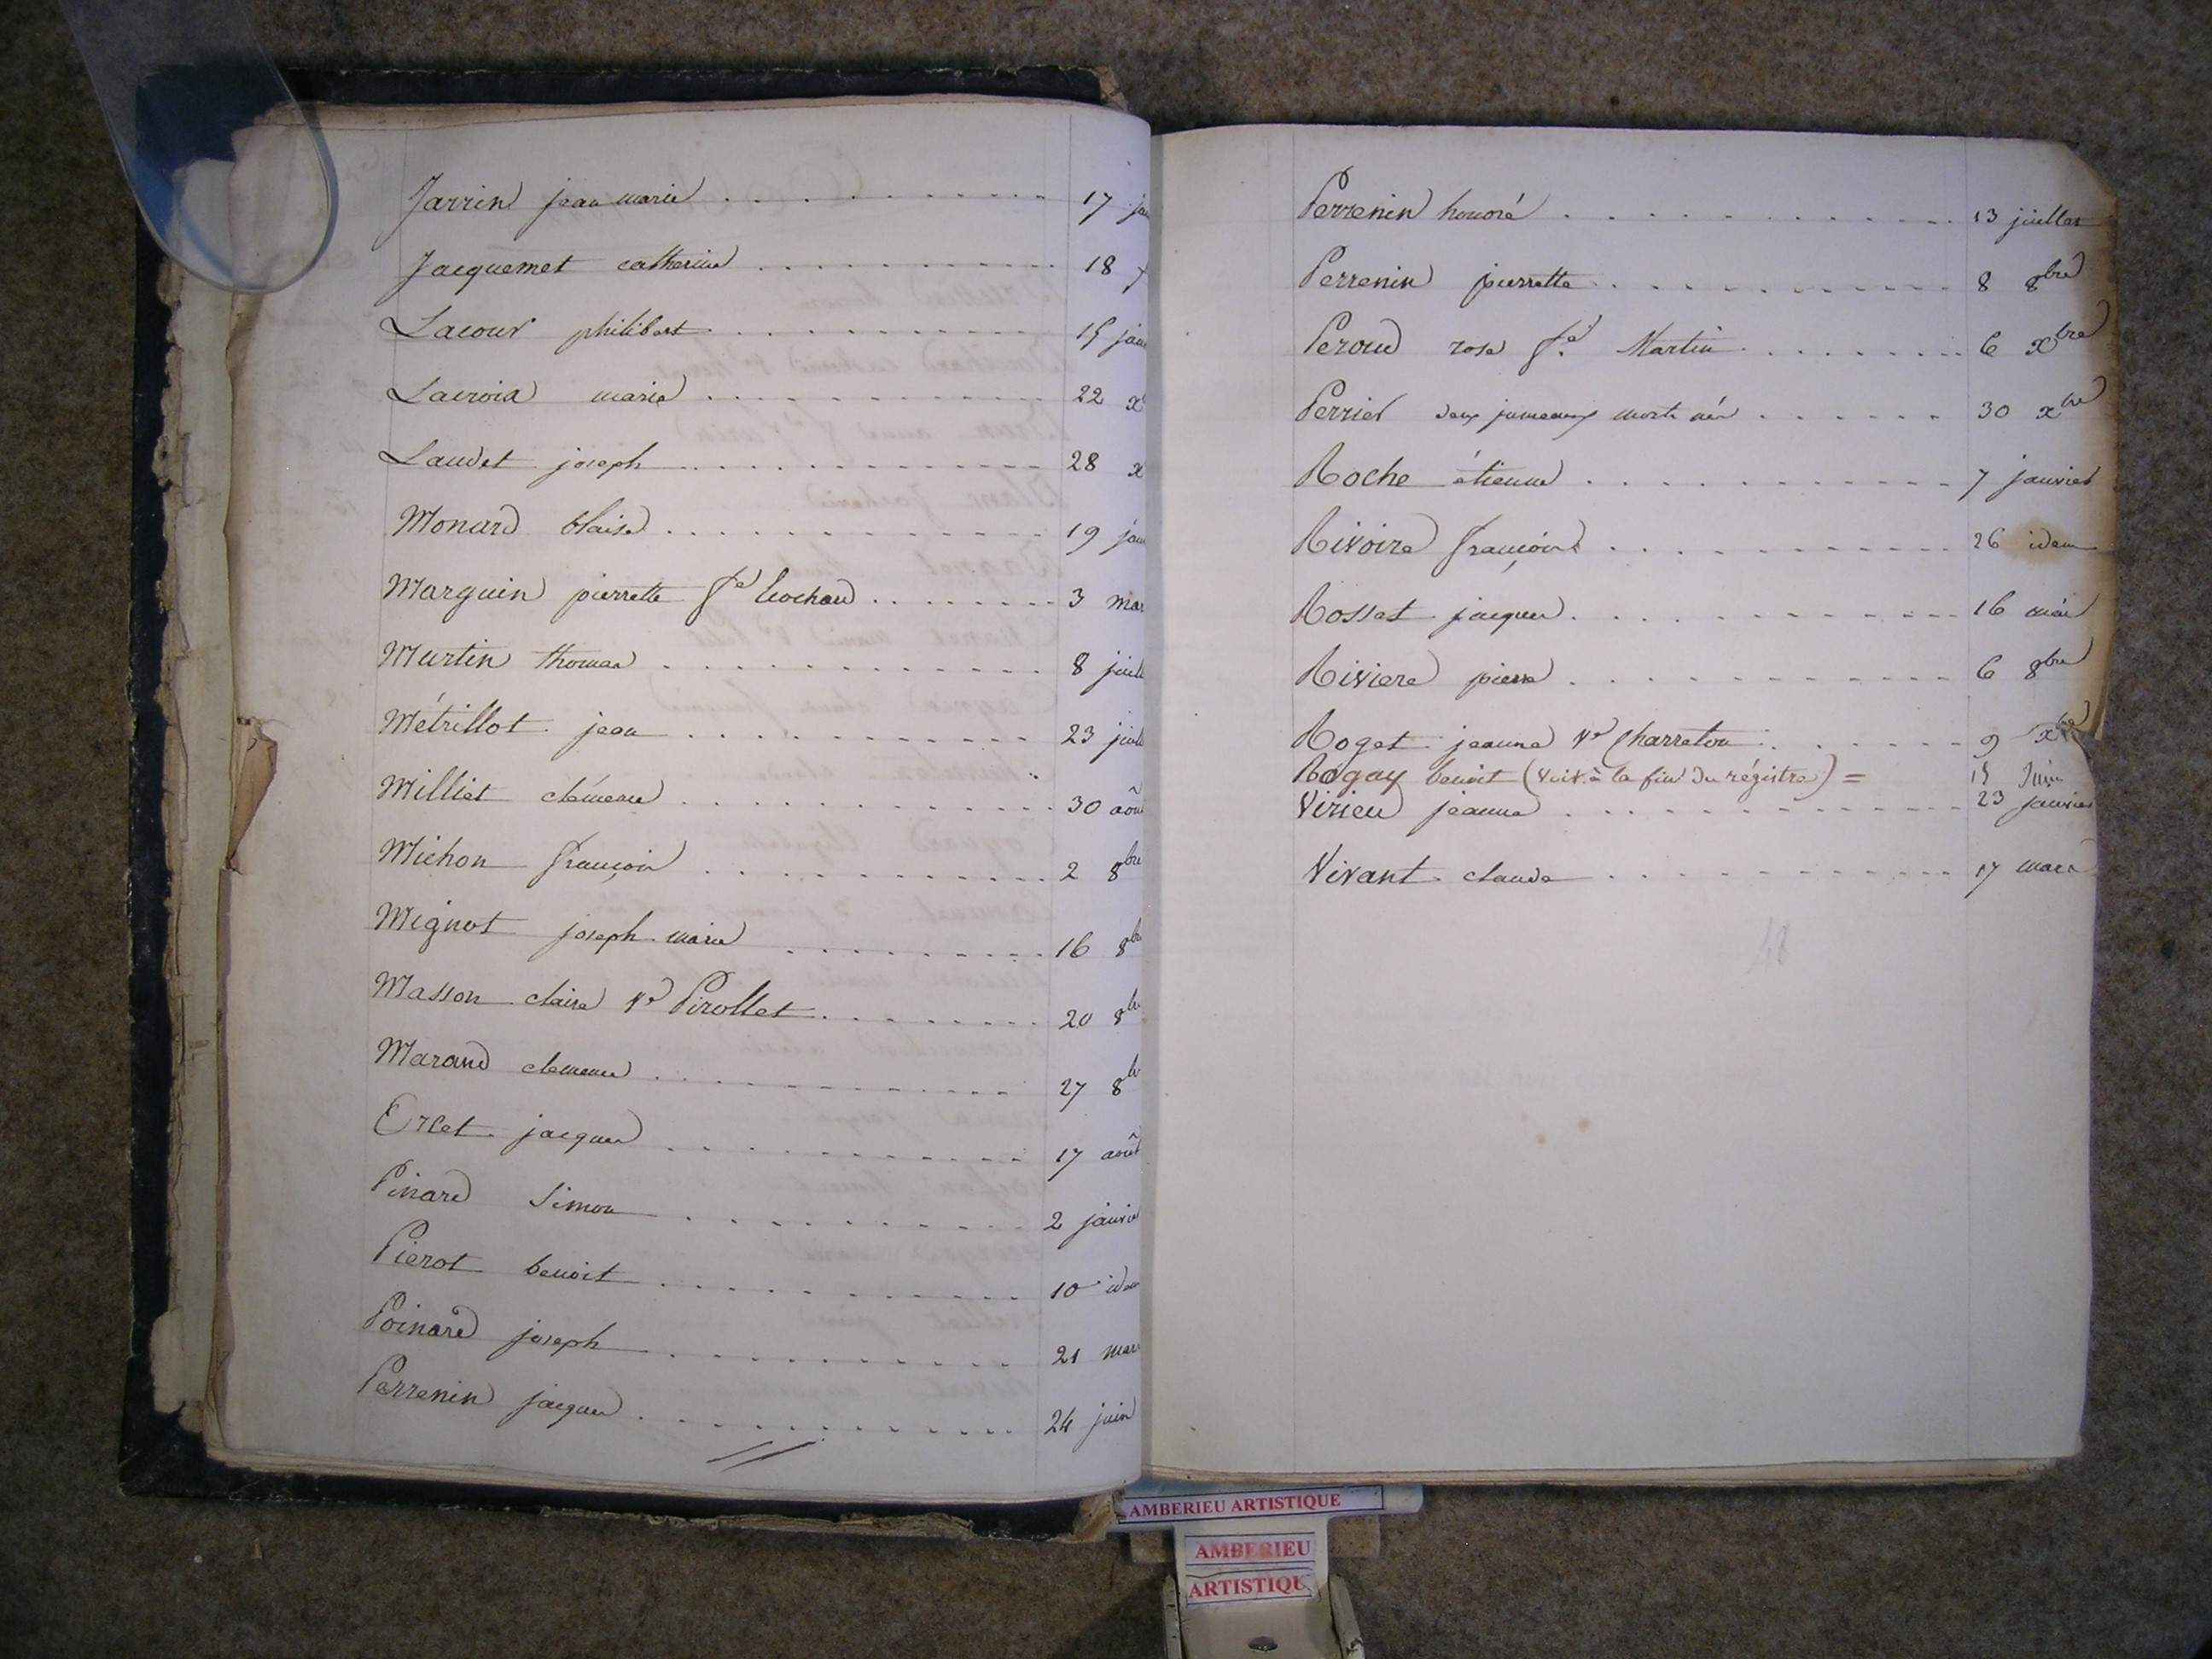 Jarrin jean marie . . . . . . . . . . 17 ja
Jacquemet catherine . . . . . . . . . . 18
Lacour philibert . . . . . . . . . . 15 jan
Lacroix marie . . . . . . . . . . 22 x
Laudet joseph . . . . . . . . . . 28 x
Monard blaise . . . . . . . . . . 19 jan
Marguin pierrette fe . . . . . . . . 3 mar
Martin thomas . . . . . . . . . . 8 juil
Métrillot jean . . . . . . . . . . 23 juil
Milliet clémence . . . . . . . . . . 30 aôu
Michon françois . . . . . . . . . . 2 8bre
Mignot joseph marie . . . . . . . . . . 16 8b
Masson claire ve Pirollet . . . . . . . . 20 8b
Marand clemence . . . . . . . . . . 27 8b
jacques . . . . . . . . . . 17 août
Pinard Simon . . . . . . . . . . 2 janvier
Pierot benoit . . . . . . . . . . 10 idem
Poinard joseph . . . . . . . . . . 21 mars
Perrenin jacques . . . . . . . . . . 24 juin
Perrenin honoré . . . . . . . . . . 13 juillet
Perrenin pierrette . . . . . . . . . . 8 8bre
Peroud rose fe Martin . . . . . . . . 6 xbre
Perrier deux jumeaux morts nés . . . . . . 30 xbre
Roche étienne . . . . . . . . . . 7 janvier
Rivoire françois . . . . . . . . . . 26 idem
Rosset jacques . . . . . . . . . . 16 mai
Riviere pierre . . . . . . . . . . 6 8bre
Roget jeanne ve Charreton . . . . . . 9 xbre
Rogay benoit (voir à la fin du régistre) = 15 Juin
Virieu jeanne . . . . . . . . . . 23 janvier
Vivant claude . . . . . . . . . . 17 mars
48
AMBERIEU ARTISTIQUE
AMBERIEU
ARTISTIQU